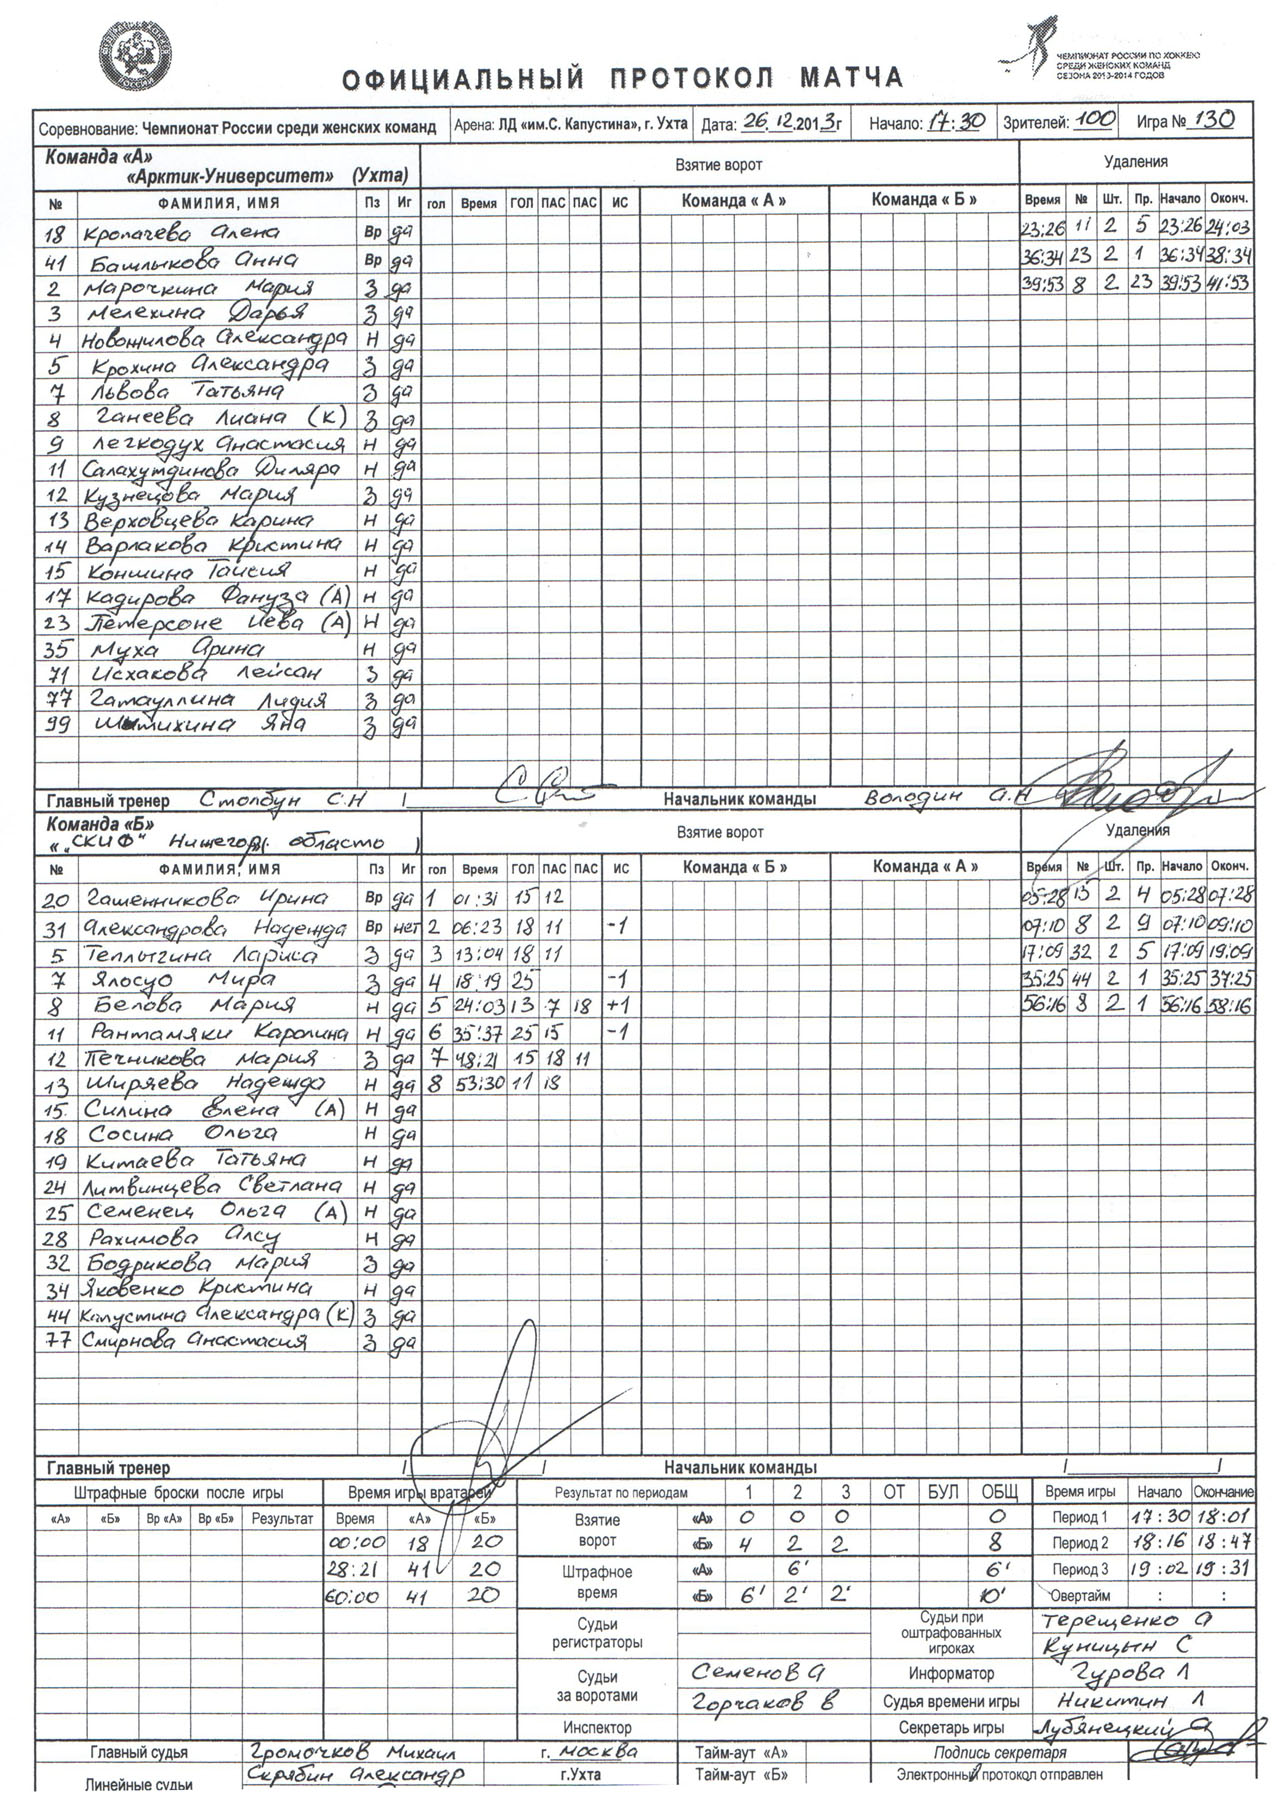 ЧЕМПИОНАТ РОССИИ ПО ХОККЕЮ
СРЕДИ ЖЕНСКИХ КОМАНД
СЕЗОНА 2013-2014 ГОДОВ
ОФИЦИАЛЬНЫЙ ПРОТОКОЛ МАТЧА
Соревнование: Чемпионат России среди женских команд Арена: ЛД «им.С. Капустина», г. Ухта Дата: 26.12.2013г Начало: 17:30 Зрителей: 100 Игра № 130
Команда «А» Взятие ворот Удаления
«Арктик-Университет» (Ухта)
№ ФАМИЛИЯ, ИМЯ Пз Иг гол Время ГОЛ ПАС ПАС ИС Команда « А » Команда « Б » Время № Шт. Пр. Начало Оконч.
18 Кропачева Алена Вр да 23:26 11 2 5 23:26 24:03
41 Башлыкова Анна Вр да 36:34 23 2 1 36:34 38:34
2 Марочкина Мария З да 39:53 8 2 23 39:53 41:53
3 Мелехина Дарья З да
4 Новожилова Александра Н да
5 Крохина Александра З да
7 Львова Татьяна З да
8 Ганеева Лиана (К) З да
9 Легкодух Анастасия Н да
11 Салахутдинова Диляра Н да
12 Кузнецова Мария З да
13 Верховцева Карина Н да
14 Варлакова Кристина Н да
15 Коншина Таисия Н да
17 Кадирова Фануза (А) Н да
23 Петерсоне Иева (А) Н да
35 Муха Арина Н да
71 Исхакова Лейсан З да
77 Гатауллина Лидия З да
99 Шитихина Яна З да
Главный тренер Столбун С.Н / Начальник команды Володин А.Н
Команда «Б» Взятие ворот Удаления
« „СКИФ“ Нижегор. область )
№ ФАМИЛИЯ, ИМЯ Пз Иг гол Время ГОЛ ПАС ПАС ИС Команда « Б » Команда « А » Время № Шт. Пр. Начало Оконч.
20 Гашенникова Ирина Вр да 1 01:31 15 12 05:28 15 2 4 05:28 07:28
31 Александрова Надежда Вр нет 2 06:23 18 11 -1 07:10 8 2 9 07:10 09:10
5 Теплыгина Лариса З да 3 13:04 18 11 17:09 32 2 5 17:09 19:09
7 Ялосуо Мира З да 4 18:19 25 -1 35:25 44 2 1 35:25 37:25
8 Белова Мария Н да 5 24:03 13 7 18 +1 56:16 8 2 1 56:16 58:16
11 Рантамяки Каролина Н да 6 35:37 25 15 -1
12 Печникова Мария З да 7 48:21 15 18 11
13 Ширяева Надежда Н да 8 53:30 11 18
15 Силина Елена (А) Н да
18 Сосина Ольга Н да
19 Китаева Татьяна Н да
24 Литвинцева Светлана Н да
25 Семенец Ольга (А) Н да
28 Рахимова Алсу Н да
32 Бодрикова Мария З да
34 Яковенко Кристина Н да
44 Капустина Александра (К) З да
77 Смирнова Анастасия З да
Главный тренер / / Начальник команды / /
Штрафные броски после игры Время игры вратарей Результат по периодам 1 2 3 ОТ БУЛ ОБЩ Время игры Начало Окончание
«А» «Б» Вр «А» Вр «Б» Результат Время «А» «Б» Взятие ворот «А» 0 0 0 0 Период 1 17:30 18:01
00:00 18 20 «Б» 4 2 2 8 Период 2 18:16 18:47
28:21 41 20 Штрафное время «А» 6' 6' Период 3 19:02 19:31
60:00 41 20 «Б» 6' 2' 2' 10' Овертайм : :
Судьи регистраторы Судьи при оштрафованных игроках Терещенко А
Куницын С
Судьи за воротами Семенов А Информатор Гурова Л
Горчаков В Судья времени игры Никитин Л
Инспектор Секретарь игры Лубянецкий А
Главный судья Громочков Михаил г. Москва Тайм-аут «А» Подпись секретаря
Линейные судьи Скрябин Александр г.Ухта Тайм-аут «Б» Электронный протокол отправлен